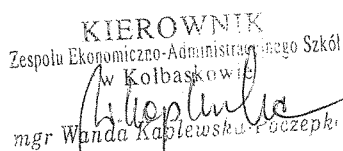 KIEROWNIK
Zespołu Ekonomiczno-Administracyjnego Szkół
w Kołbaskowie
mgr Wanda Kaplewska-Poczepko